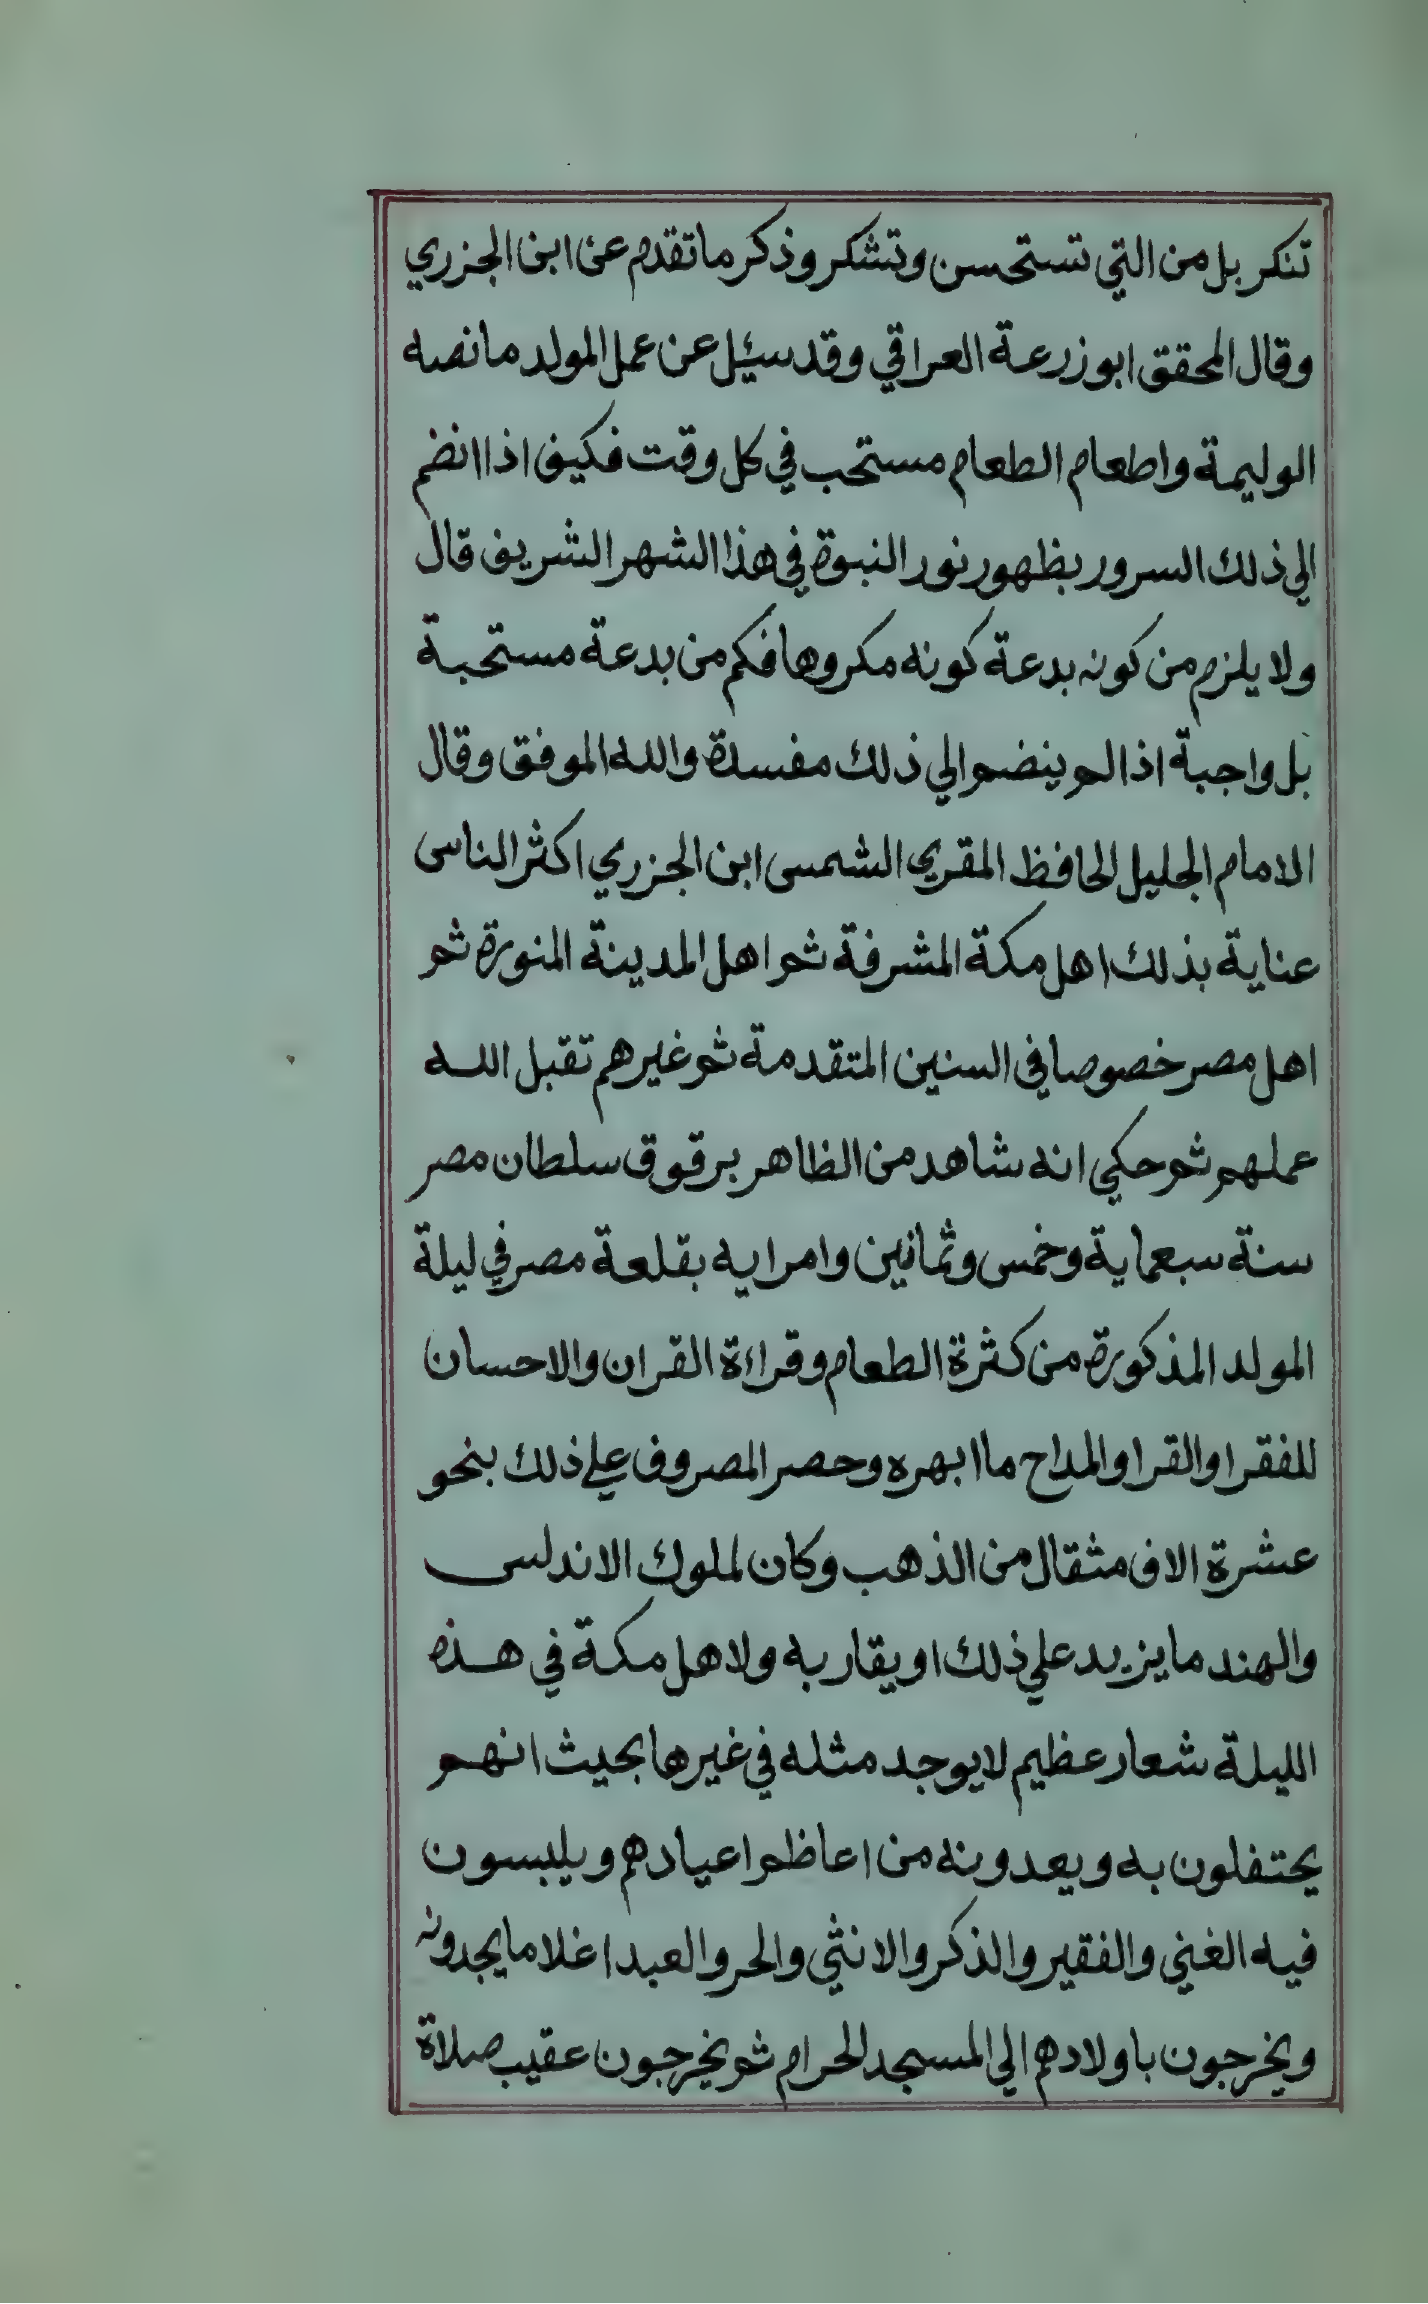 تنكر بل من التي تستحسن وتشكر وذكر ما تقدم عن ابن الجزري
وقال المحقق ابو زرعة العراقي وقد سئيل عن عمل المولد ما نصه
الوليمة واطعام الطعام مستحب في كل وقت فكيف اذا انضم
الي ذلك السرور بظهور نور النبوة في هذا الشهر الشريف قال
ولا يلزم من كونه بدعة كونه مكروها فكم من بدعة مستحبة
بل واجبة اذا لم ينضم الي ذلك مفسدة والله الموفق وقال
الامام الجليل الحافظ المقري الشمس ابن الجزري اكثر الناس
عناية بذلك اهل مكة المشرفة ثم اهل المدينة المنورة ثم
اهل مصر خصوصا في السنين المتقدمة ثم غيرهم تقبل الله
عملهم ثم حكي انه شاهد من الظاهر برقوق سلطان مصر
سنة سبعماية وخمس وثمانين وامرايه بقلعة مصر في ليلة
المولد المذكورة من كثرة الطعام وقراءة القران والاحسان
للفقرا والقرا والمداح ما ابهره وحصر المصروف علي ذلك بنحو
عشرة الاف مثقال من الذهب وكان لملوك الاندلس
والهند ما يزيد علي ذلك او يقاربه ولاهل مكة في هذه
الليلة شعار عظيم لا يوجد مثله في غيرها بحيث انهم
يحتفلون به ويعدونه من اعاظم اعيادهم ويلبسون
فيه الغني والفقير والذكر والانثي والحر والعبد اغلا ما يجدونه
ويخرجون باولادهم الي المسجد الحرام ثم يخرجون عقيب صلاة